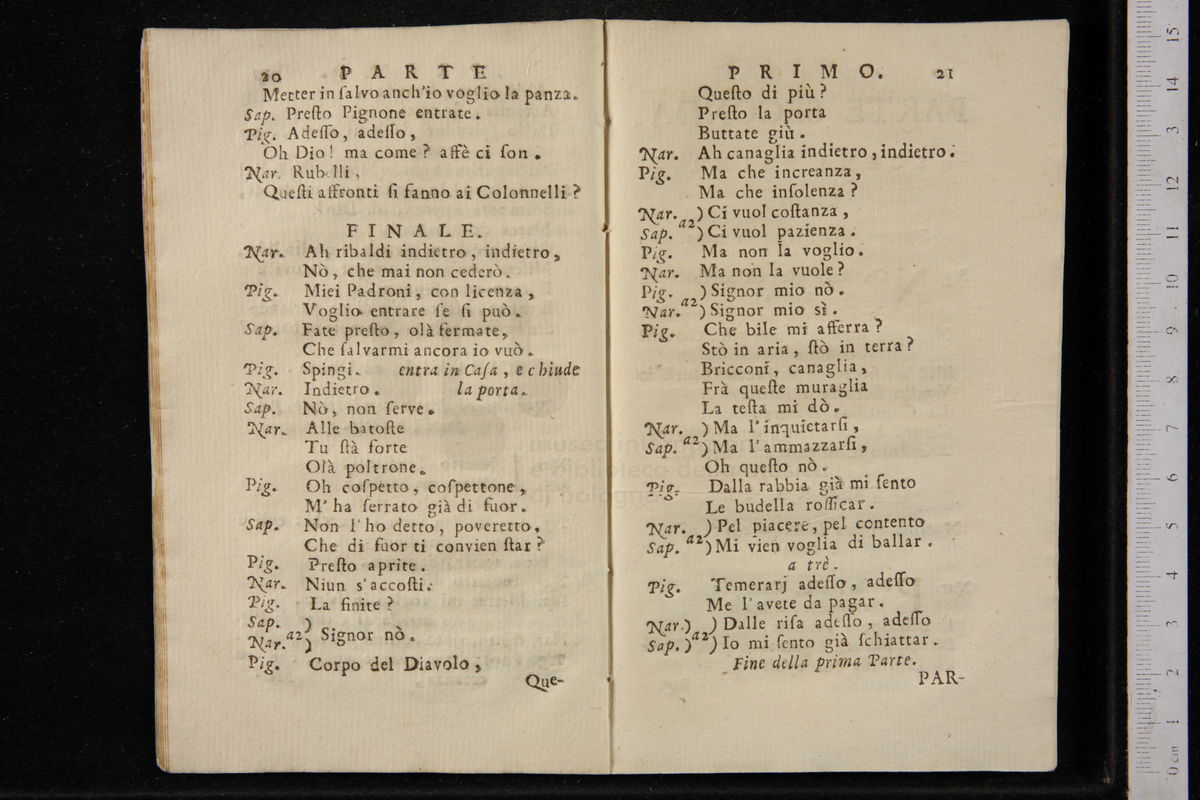 20 PARTE
Metter in ſalvo anch'io voglio la panza.
Sap. Preſto Pignone entrate.
Pig. Adeſſo, adeſſo,
Oh Dio! ma come? affè ci ſon.
Nar. Rubelli,
Queſti affronti ſi fanno ai Colonnelli?
FINALE.
Nar. Ah ribaldi indietro, indietro,
Nò, che mai non cederò.
Pig. Miei Padroni, con licenza,
Voglio entrare ſe ſi può.
Sap. Fate preſto, olà fermate,
Che ſalvarmi ancora io vuò.
Pig. Spingi. entra in Caſa, e chiude
Nar. Indietro. la porta.
Sap. Nò, non ſerve.
Nar. Alle batoſte
Tu ſtà forte
Olà poltrone.
Pig. Oh coſpetto, coſpettone,
M'ha ſerrato già di fuor.
Sap. Non l'ho detto, poveretto,
Che di fuor ti convien ſtar?
Pig. Preſto aprite.
Nar. Niun s'accoſti.
Pig. La finite?
Sap. )
Nar. a2 ) Signor nò.
Pig. Corpo del Diavolo,
Que-
PRIMO. 21
Queſto di più?
Preſto la porta
Buttate giù.
Nar. Ah canaglia indietro, indietro.
Pig. Ma che increanza,
Ma che inſolenza?
Nar. ) Ci vuol coſtanza,
Sap. a2 ) Ci vuol pazienza.
Pig. Ma non la voglio.
Nar. Ma non la vuole?
Pig. ) Signor mio nò.
Nar. a2 ) Signor mio sì.
Pig. Che bile mi afferra?
Stò in aria, ſtò in terra?
Bricconi, canaglia,
Frà queſte muraglia
La teſta mi dò.
Nar. ) Ma l'inquietarſi,
Sap. a2 ) Ma l'ammazzarſi,
Oh queſto nò.
Pig. Dalla rabbia già mi ſento
Le budella roſſicar.
Nar. ) Pel piacere, pel contento
Sap. a2 ) Mi vien voglia di ballar.
a trè.
Pig. Temerarj adeſſo, adeſſo
Me l'avete da pagar.
Nar.) ) Dalle riſa adeſſo, adeſſo
Sap.) a2 ) Io mi ſento già ſchiattar.
Fine della prima Parte.
PAR-